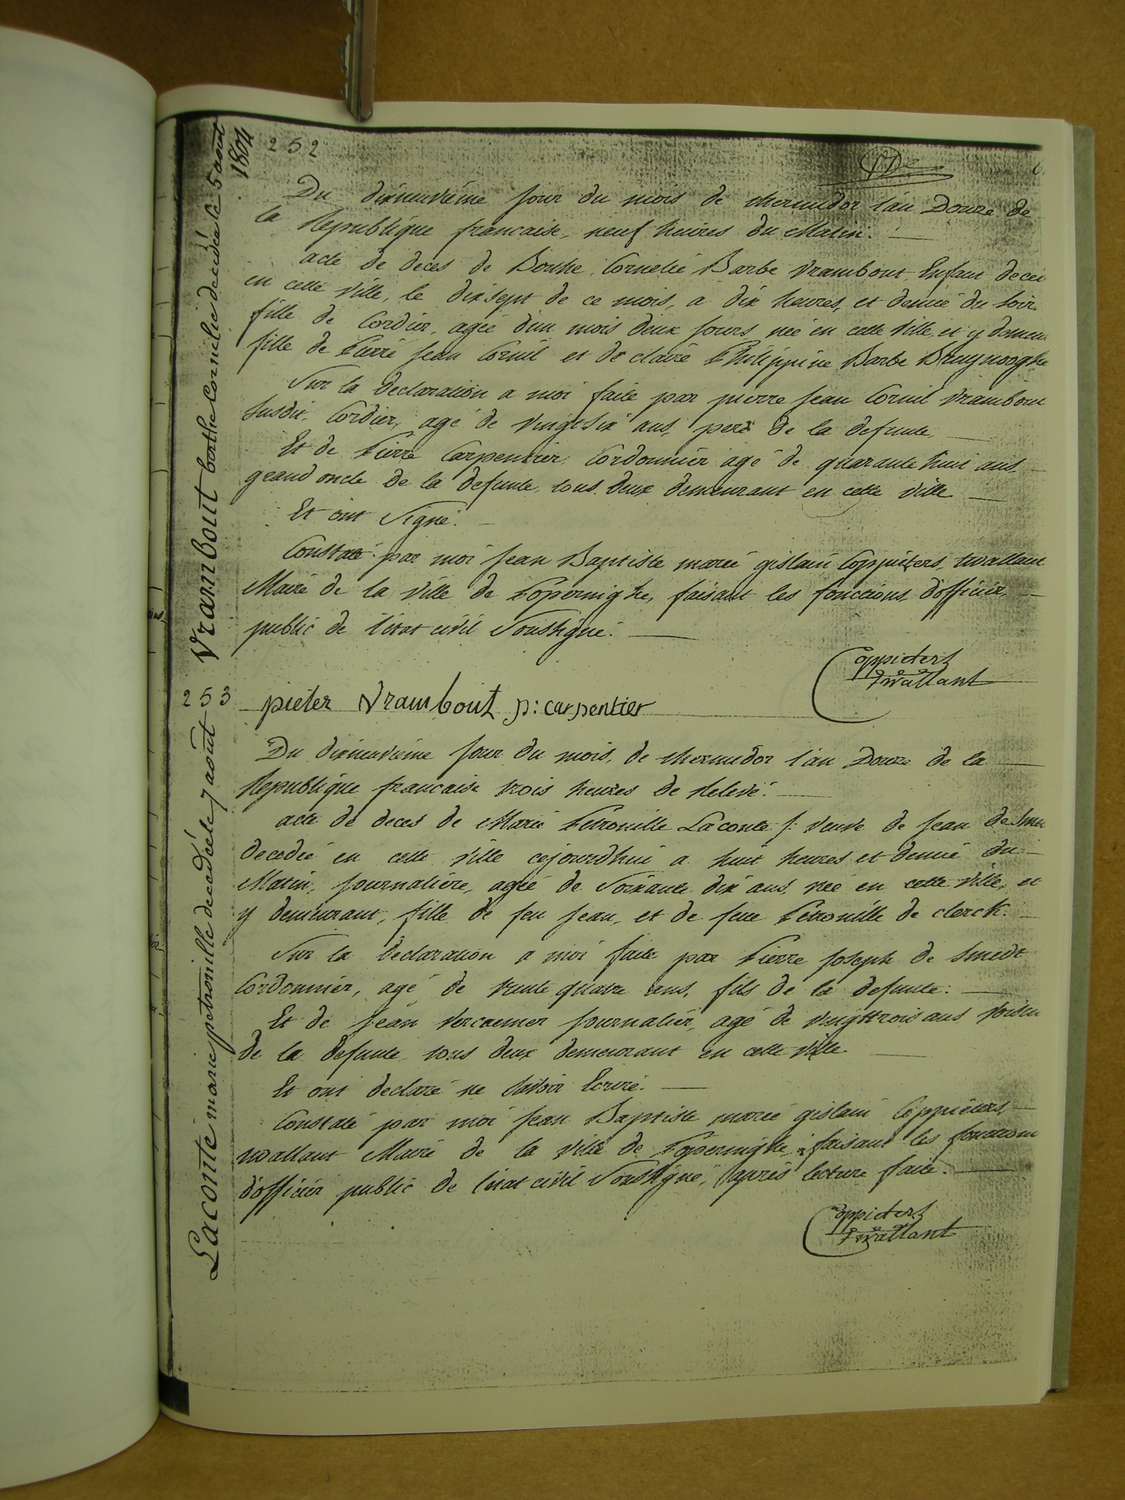 252
Vrambout barthe Cornélie decedée le 5 aout
1804
Du dixneuvième jour du mois de thermidor l'an Douze de
la Republique francaise, neuf heures du Matin.
acte de deces de Cornelie Barbe Vrambout Enfant decee
en cette Ville, le dixsept de ce mois, a dix heures, et demie du soir
fille de Cordier, agée d'un mois deux jours née en cette Ville et y demeu
fille de Pierre Jean Cornil et de claire Philippine Barbe Bruynooghe
Sur la declaration a moi faite par pierre Jean Cornil Vrambout
susdit, Cordier, agé de vingtsix ans, pere de la defunte,
Et de Pierre Carpentier, Cordonnier agé de quarante huit ans
grand oncle de la defunte, tous deux demeurant en cette ville
Et ont Signé.
Constaté par moi Jean Baptiste marie gislain Coppieters, twallant
Maire de la Ville de Poperinghe, faisant les fonctions d'officier
public de l'état civil Soussigné.
Coppieters
Twallant
253
pieter Vrambout p: carpentier
Laconte marie petronille decedée le 7 aout
Du dixneuvieme jour du mois, de thermidor l'an Douze de la
Republique francaise trois heures de Relevé.
acte de deces de Marie Petronille Laconte /: veuve de Jean de Sme
decedée en cette Ville cejourdhui a huit heures et demie du
Matin, journalière, agée de Soixante dix ans, née en cette Ville, et
y demeurant, fille de feu Jean, et de feue Petronille de clerck.
Sur la Declaration a moi faite par Pierre Joseph de Smedt
Cordonnier, agé de trente quatre ans, fils de la defunte.
Et de Jean Vercaemer journalier, agé de vingttrois ans Voisin
de la defunte, tous deux demeurant en cette Ville.
Et ont declaré ne Savoir Ecrire.
Constaté par moi Jean Baptiste marie gislain Coppieters,
twallant Maire de la Ville de Poperinghe, faisant les fonctions
d'officier public de l'état civil Soussigné, après lecture faite.
Coppieters
Twallant